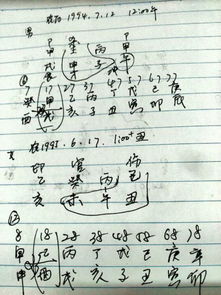 农历1994.7.12 12:00午
男
甲 癸 丙 甲
戌 酉 子 午
⑥
7 17 27 37 47 57 67 77
癸 甲 乙 丙 丁 戊 己 庚
酉 戌 亥 子 丑 寅 卯 辰
女 农历1995.6.17. 1:00+丑
印 官 伤
乙 癸 丙 己
亥 未 午 丑
8 18 28 38 48 58 68 78
甲 己 丙 丁 戊 己 庚 辛
申 酉 戌 亥 子 丑 寅 卯